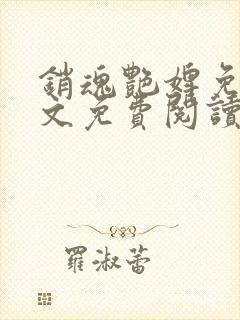 銷魂艷婢免
文免費閱讀
羅淑蕾